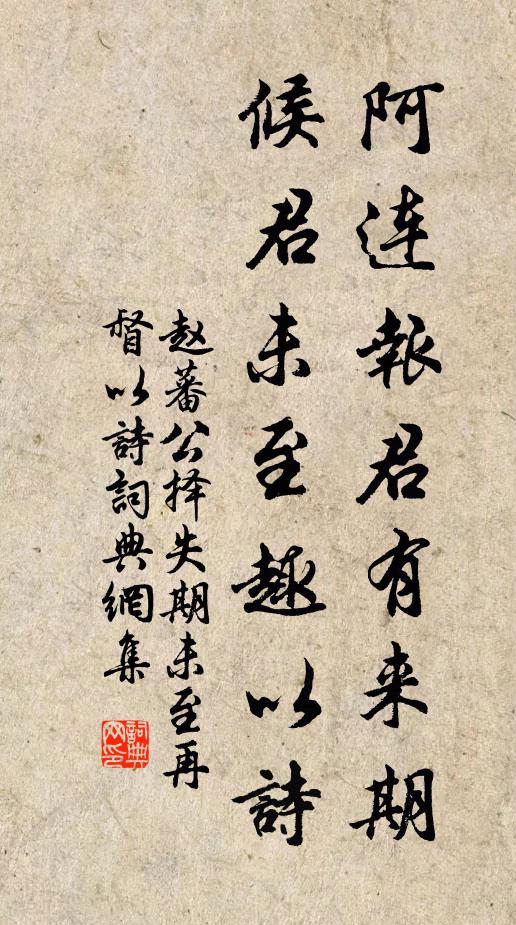 阿连報君有来期
候君未至趣以詩
赵蕃公择失期未至再
督以詩詞典網集
詞典
网印